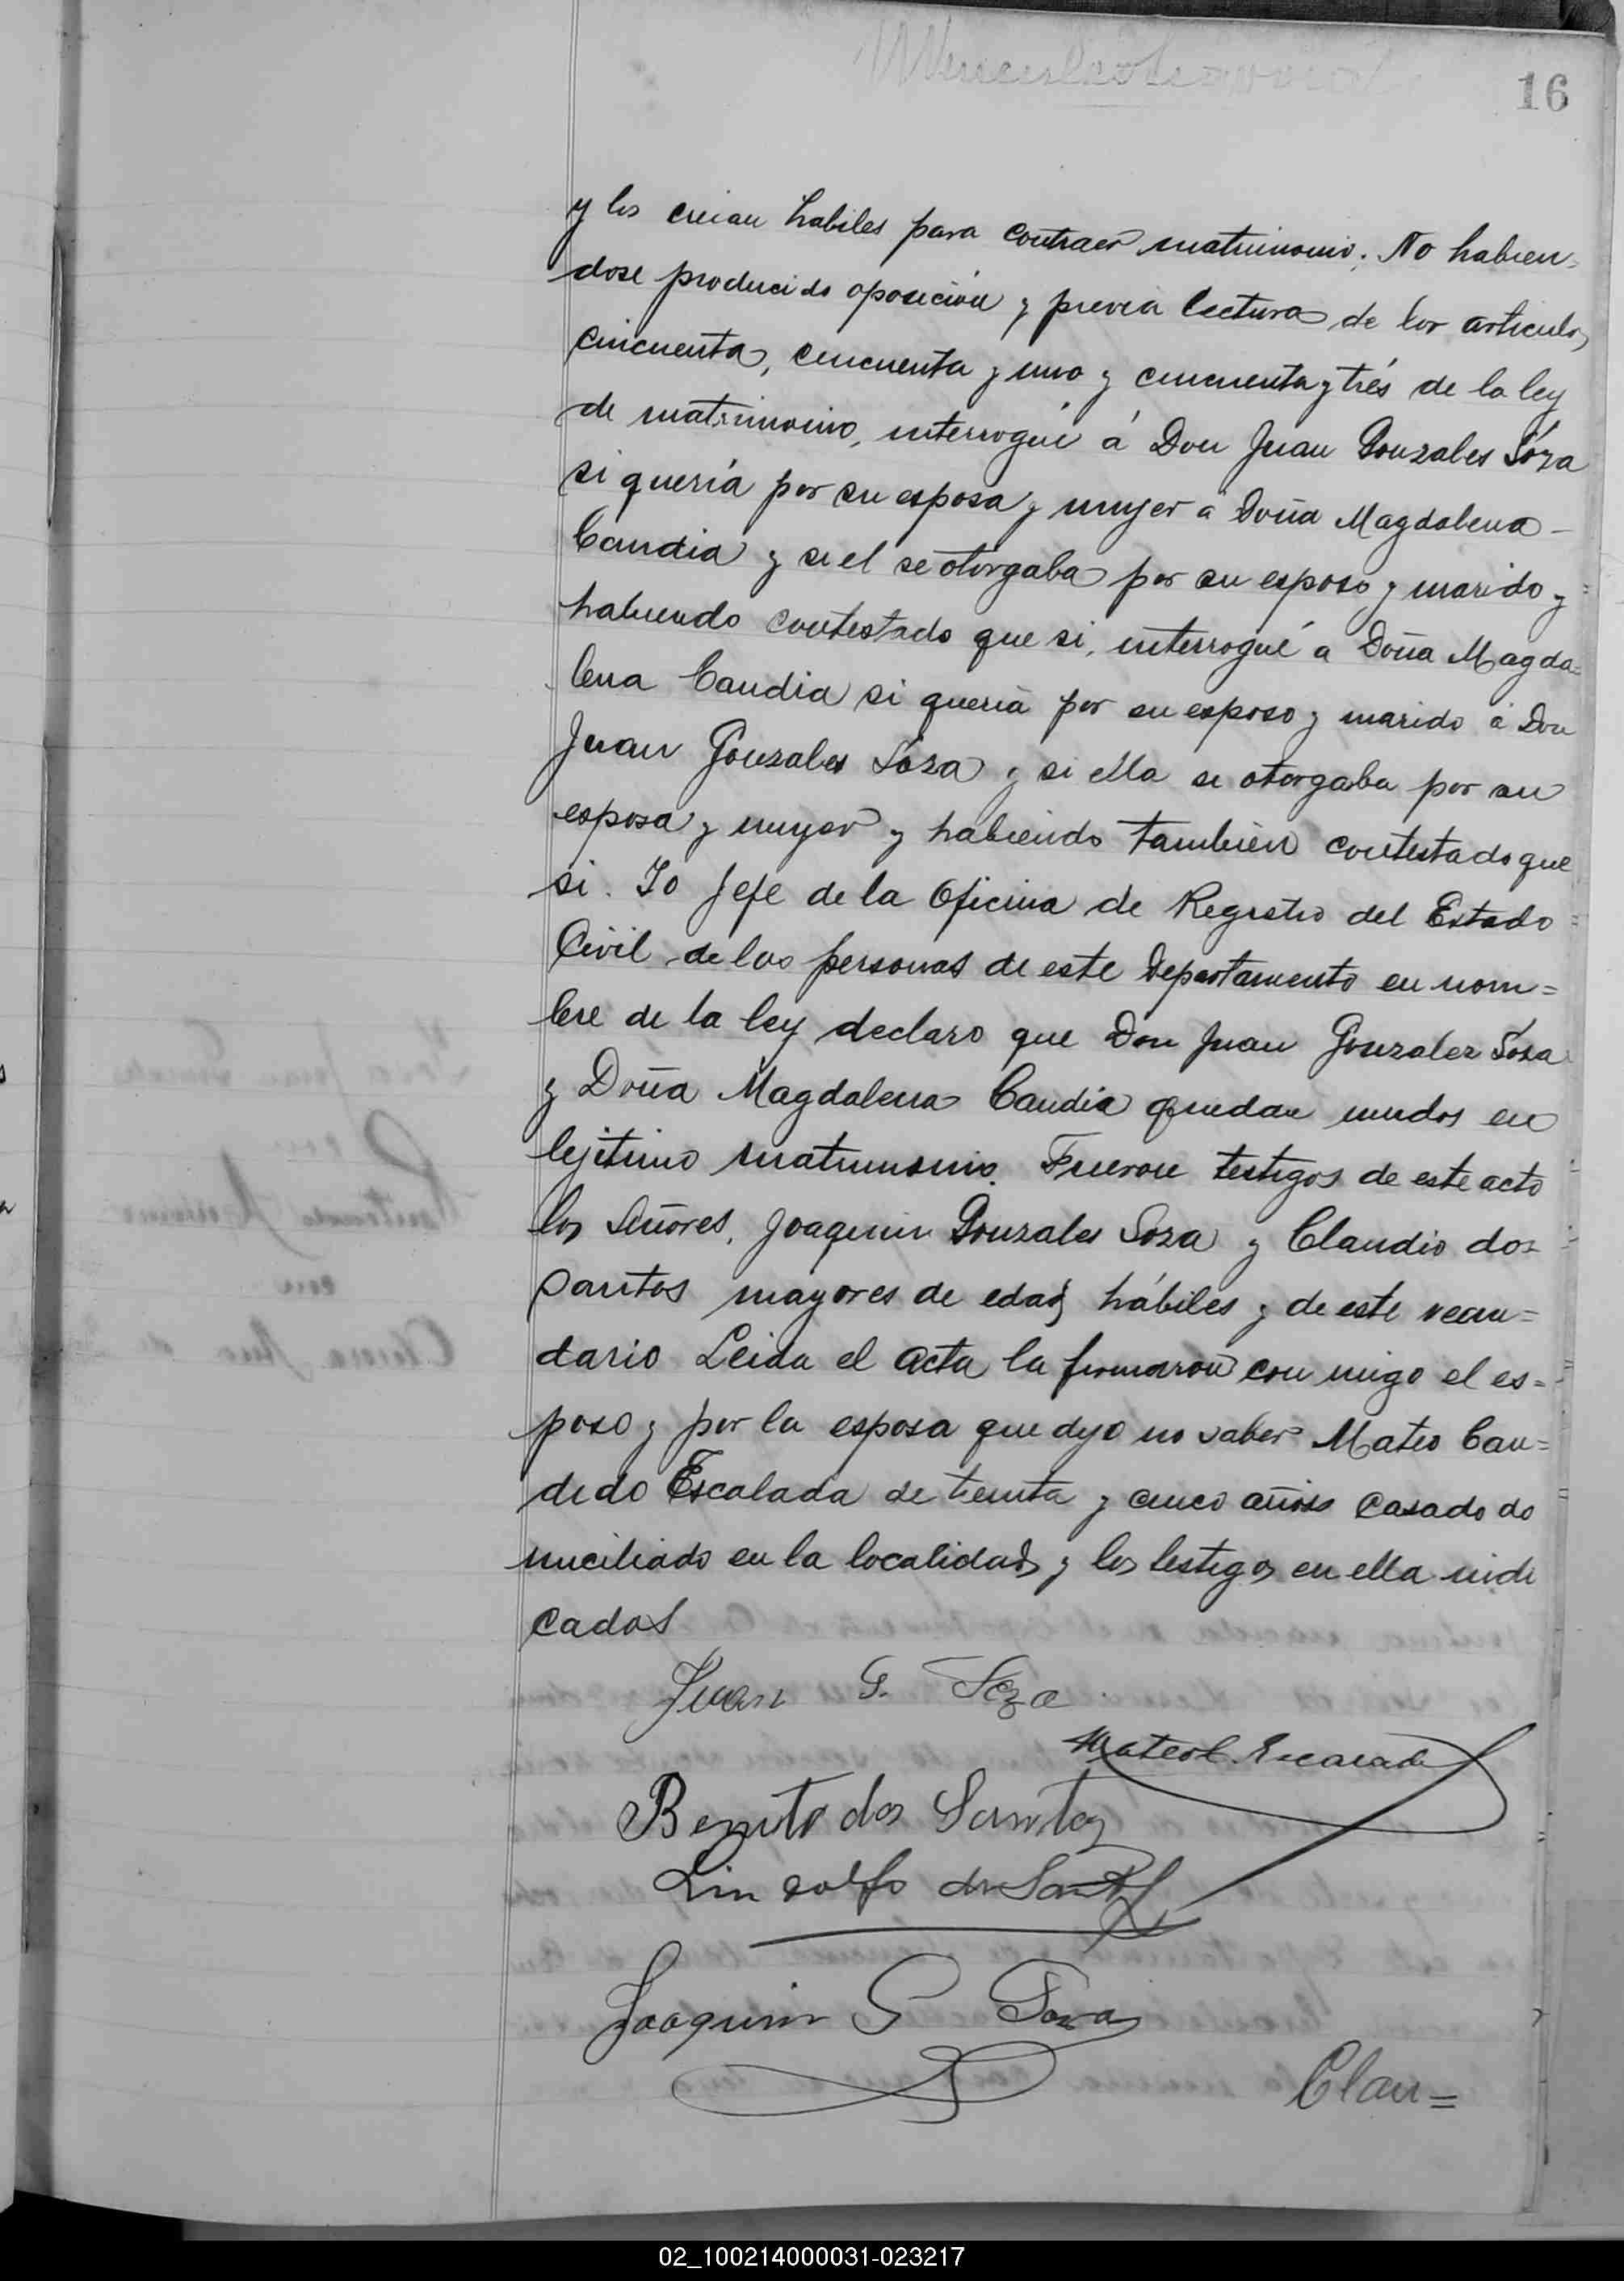 16
y los creian habiles para contraer matrimonio. No habien-
dose producido oposición y previa lectura de los articulos
cincuenta, cincuenta y uno y cincuenta y trés de la ley
de matrimonio, interrogué á Don Juan Gonzales Sóza
si quería por su esposa y mujer a Doña Magdalena -
Candia y si el se otorgaba por su esposo y marido y
habiendo contestado que si, interrogué a Doña Magda=
lena Candia si queria por su esposo y marido á Don
Juan Gonzales Sóza y si ella se otorgaba por su
esposa y mujer y habiendo tambien contestado que
si. Yo Jefe de la Oficina de Registro del Estado
Civil de las personas de este Departamento en nom=
bre de la ley declaro que Don Juan Gonzalez Soza
y Doña Magdalena Candia quedan unidos en
lejitimo matrimonio. Fueron testigos de este acto
los Señores, Joaquin Gonzales Soza y Claudio dos
Santos mayores de edad, hábiles y de este vecin=
dario Leida el acta la firmaron con migo el es=
poso y por la esposa que dijo no saber Mateo Can=
dido Escalada de treinta y cinco años casado do
miciliado en la localidad y los testigos en ella indi
cados
Juan G. Soza
Mateo C. Escalada
Benito dos Santos
Lindolfo dos Santos
Joaquin G Soza
Clau=
02_100214000031-023217